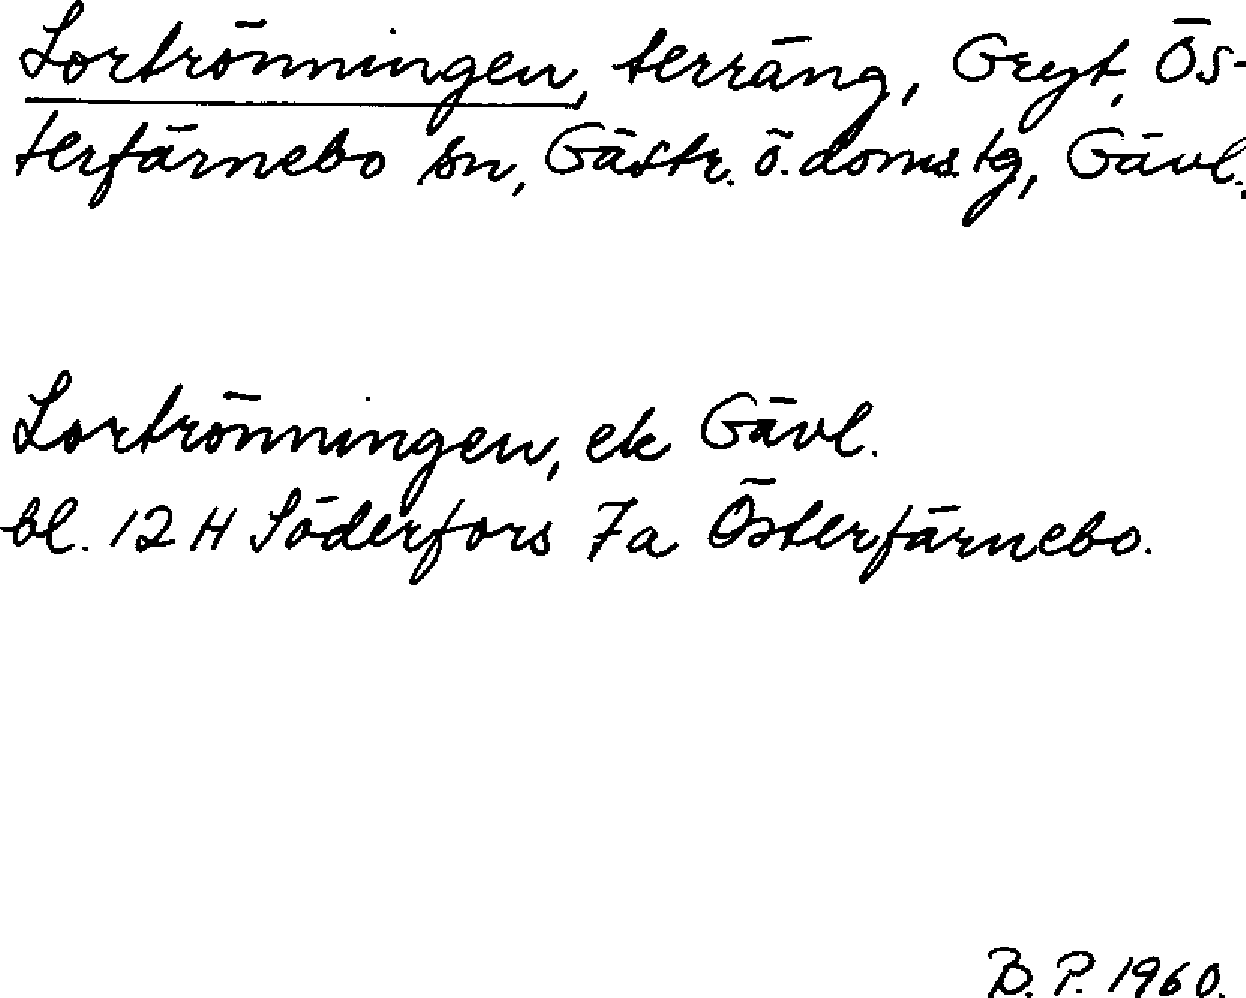 Lortrönningen, terräng, Gryt, Ös-
terfärnebo sn, Gästr. ö. doms. tg, Gävl.
Lortrönningen, ek Gävl.
bl. 12 H Söderfors 7a Österfärnebo.
B. P. 1960.